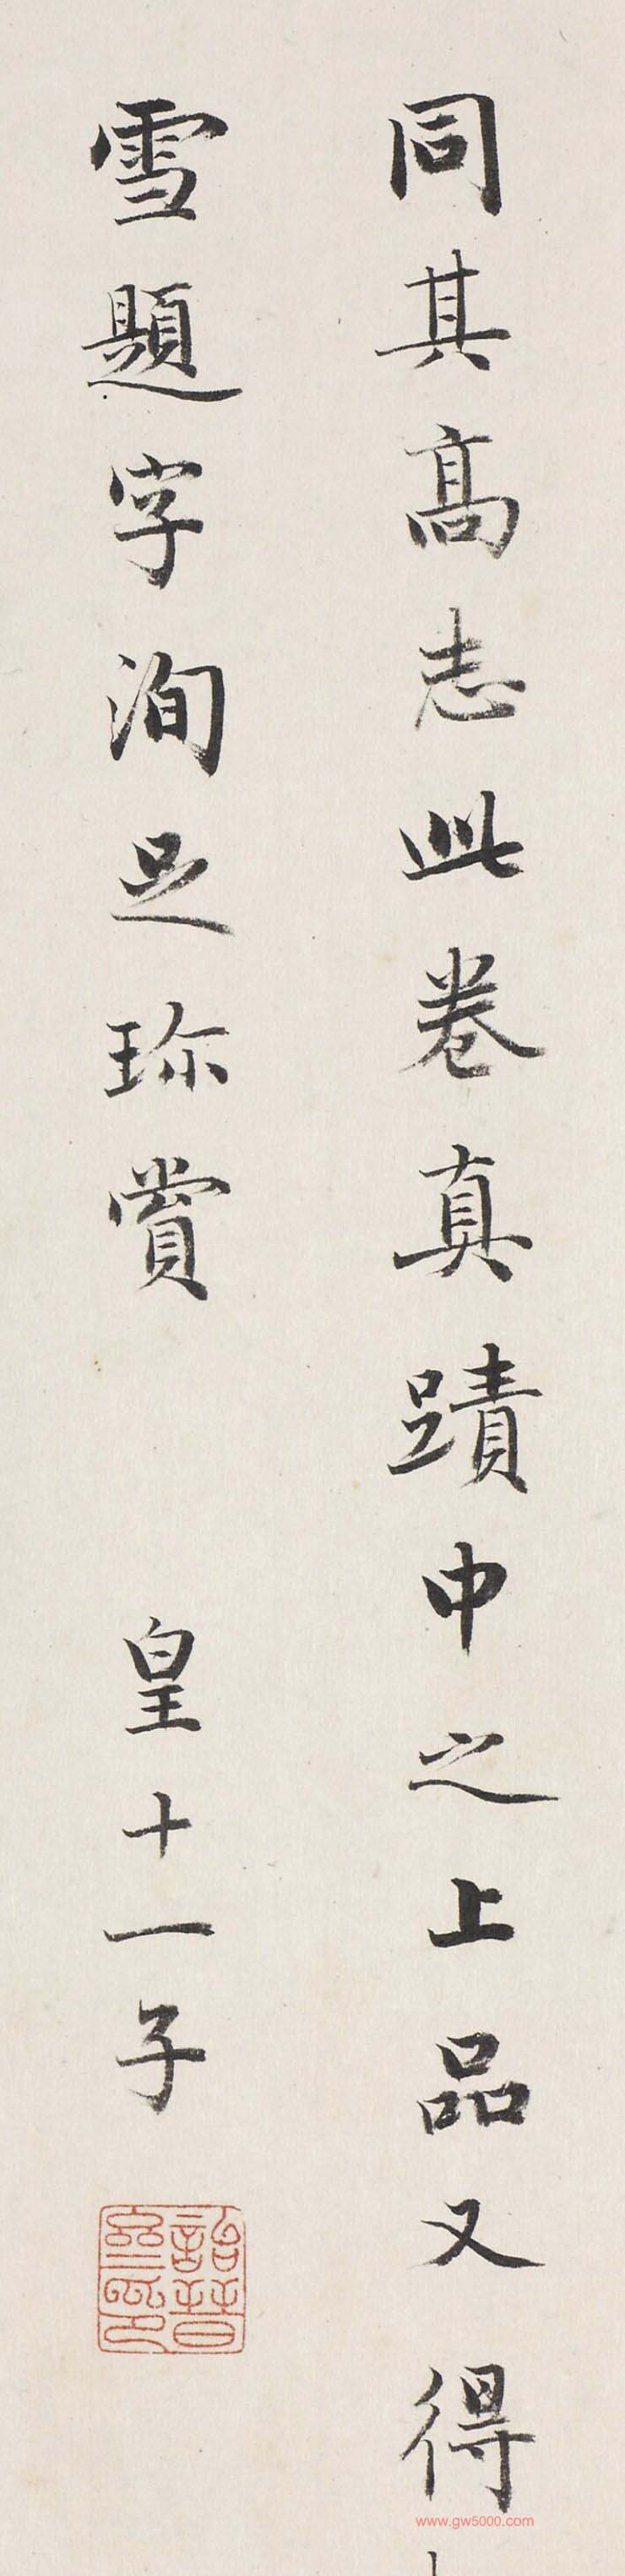 同其高志此卷真蹟中之上品又得
雪題字洵足珎賞
皇十一子
詒晉齋印
www.gw5000.com